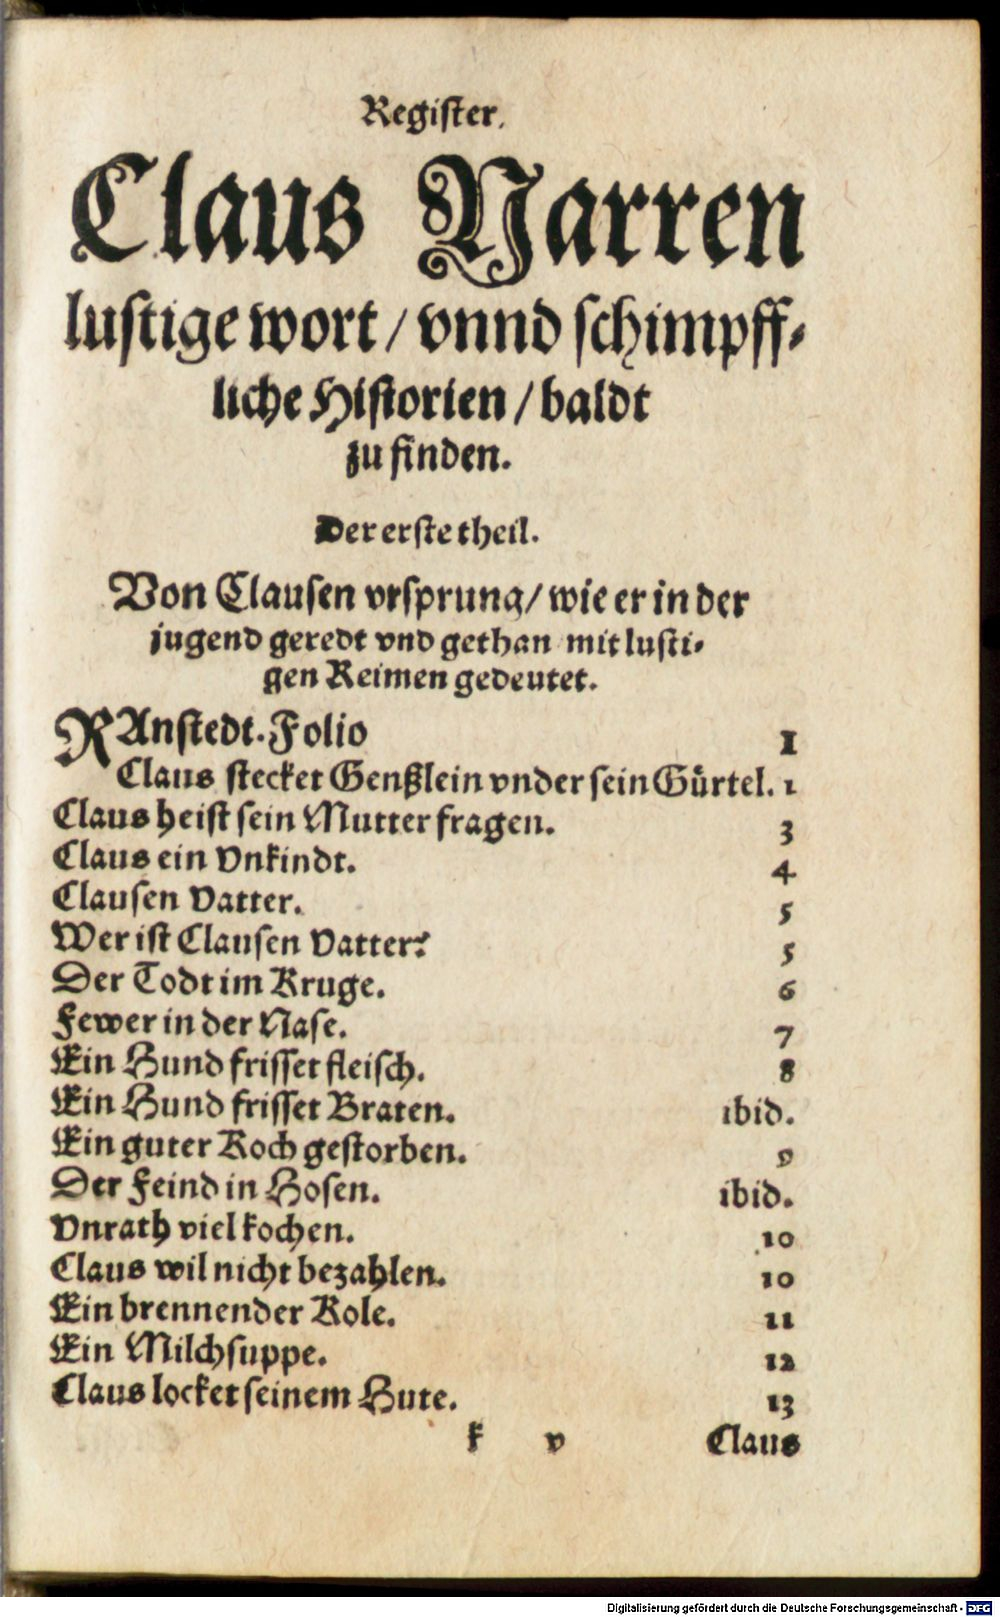 Register.
Claus Narren
lustige wort / vnnd schimpff⸗
liche Historien / baldt
zu finden.
Der erste theil.
Von Clausen vrsprung / wie er in der
jugend geredt vnd gethan mit lusti⸗
gen Reimen gedeutet.
RAnstedt. Folio 1
Claus stecket Genßlein vnder sein Gürtel. 1
Claus heist sein Mutter fragen. 3
Claus ein Vnkindt. 4
Clausen Vatter. 5
Wer ist Clausen Vatter? 5
Der Todt im Kruge. 6
Fewer in der Nase. 7
Ein Hund frisset fleisch. 8
Ein Hund frisset Braten. ibid.
Ein guter Koch gestorben. 9
Der Feind in Hosen. ibid.
Vnrath viel kochen. 10
Claus wil nicht bezahlen. 10
Ein brennender Kole. 11
Ein Milchsuppe. 12
Claus locket seinem Hute. 13
k v Claus
Digitalisierung gefördert durch die Deutsche Forschungsgemeinschaft - DFG